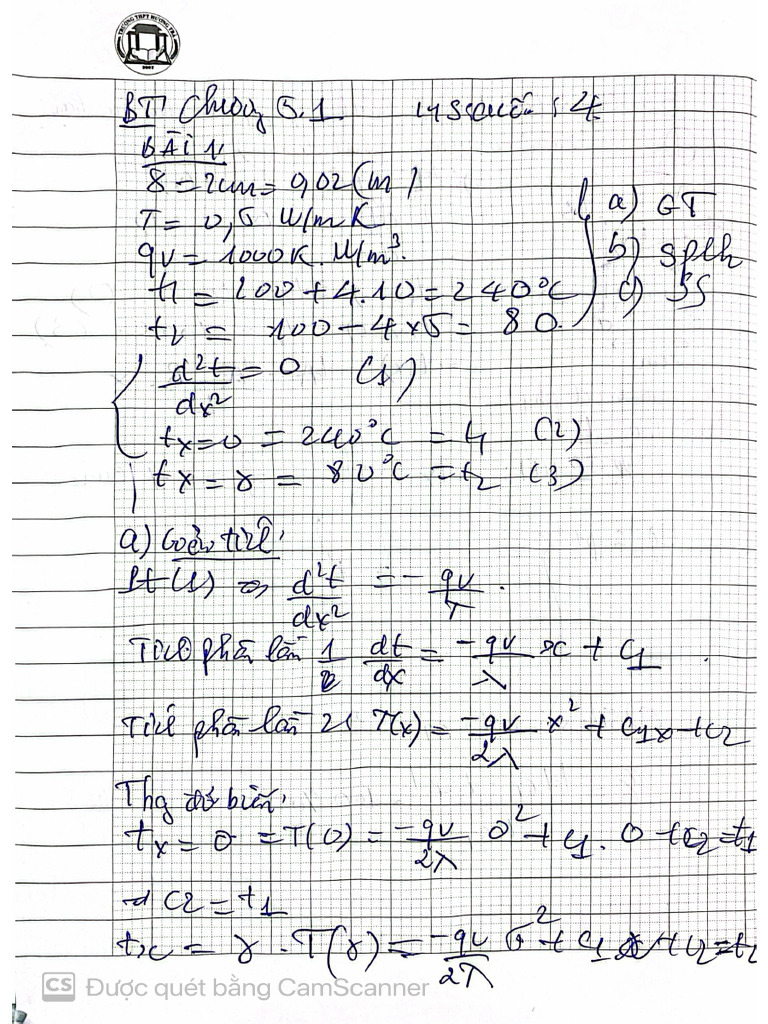 TRƯỜNG THPT HƯƠNG TRÀ
BT Chương 5.1 : 4
BÀI 1
δ = 2cm = 0,02 (m)
T = 0,5 W/m K a) GT
qv = 1000K. W/m³. b)
t1 = 200 + 4.10 = 240°C c)
t2 = 100 - 4x5 = 80.
d²t/dx² = 0 (1)
tx=0 = 240°C = t1 (2)
tx = δ = 80°C = t2 (3)
a)
Pt (1) => d²t/dx² = - qv/T .
Tích phân lần 1 dt/dx = -qv/λ x + C1
Tích phân lần 2: T(x) = -qv/2λ x² + C1x + C2
Thg đk biên:
tx = 0 = T(0) = -qv/2λ 0² + C1. 0 + C2 = t1
→ C2 = t1
tx = δ . T(δ) = -qv/2λ δ² + C1 δ + C2 = t2
CS Được quét bằng CamScanner